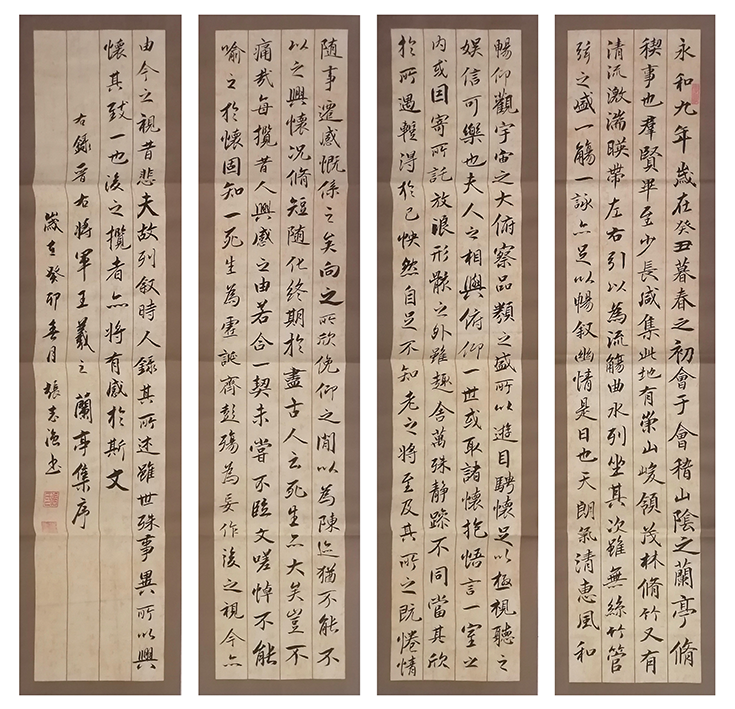 永和九年歲在癸丑暮春之初會于會稽山陰之蘭亭脩
稧事也羣賢畢至少長咸集此地有崇山峻領茂林脩竹又有
清流激湍暎帶左右引以為流觴曲水列坐其次雖無絲竹管
弦之盛一觴一詠亦足以暢叙幽情是日也天朗氣清惠風和
暢仰觀宇宙之大俯察品類之盛所以遊目騁懷足以極視聽之
娛信可樂也夫人之相與俯仰一世或取諸懷抱悟言一室之
內或因寄所託放浪形骸之外雖趣舍萬殊静躁不同當其欣
於所遇暫得於己怏然自足不知老之將至及其所之既惓情
隨事遷感慨係之矣向之所欣俛仰之閒以為陳迹猶不能不
以之興懷况脩短隨化終期於盡古人云死生亦大矣豈不
痛哉每攬昔人興感之由若合一契未嘗不臨文嗟悼不能
喻之於懷固知一死生為虛誕齊彭殤為妄作後之視今亦
由今之視昔悲夫故列叙時人錄其所述雖世殊事異所以興
懷其致一也後之攬者亦將有感於斯文
右錄晉右將軍王羲之蘭亭集序
歲在癸卯春月張志書